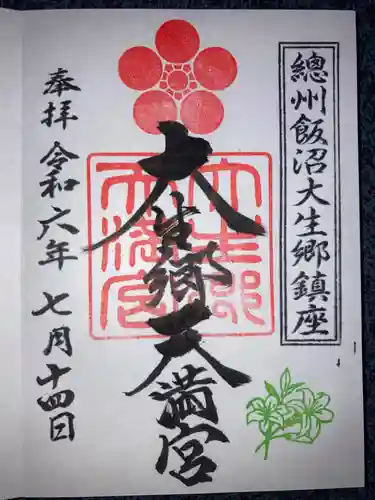 總州飯沼大生郷鎮座
大生郷天満宮
大生郷天満宮
奉拝 令和六年 七月十四日